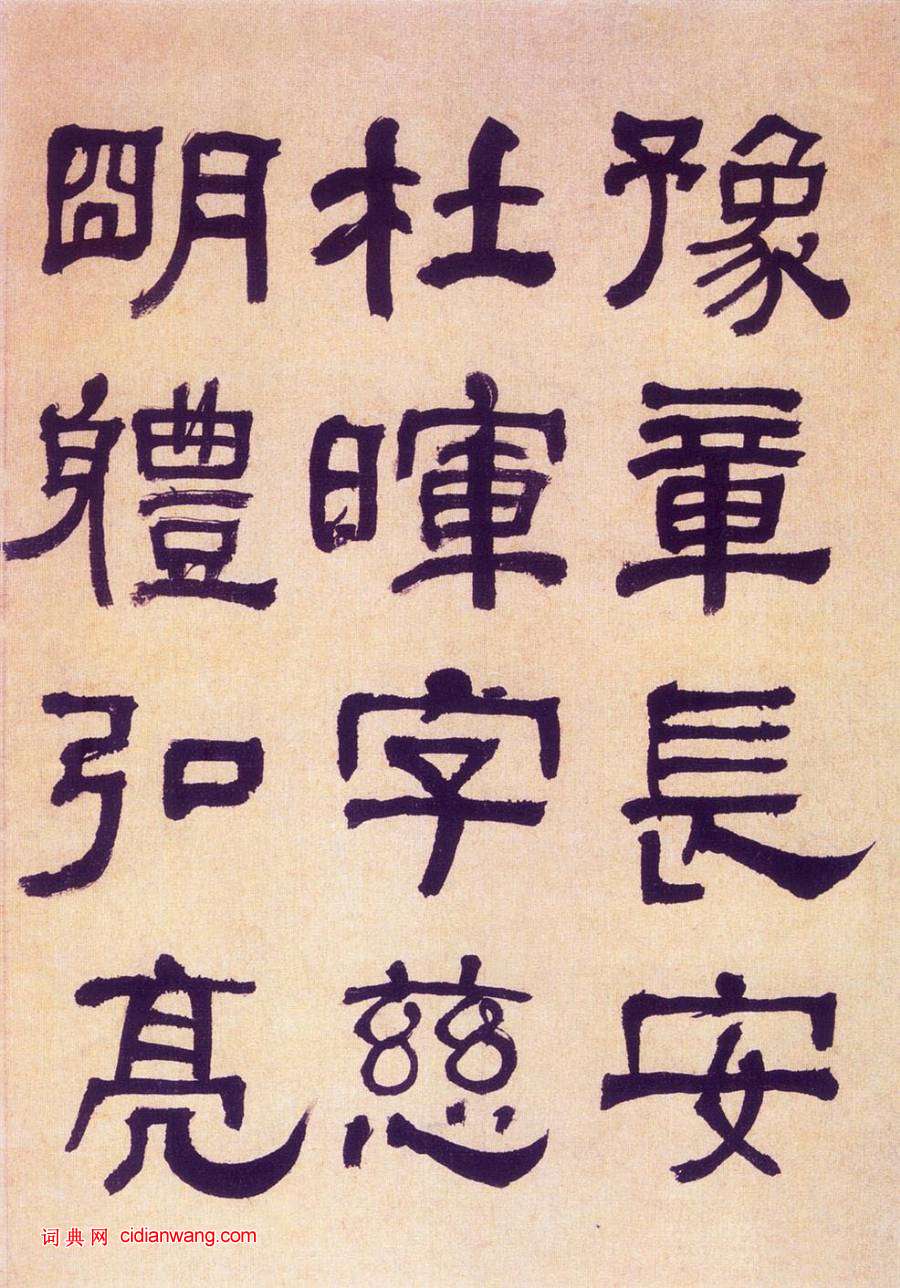 豫章長安
杜暉字慈
明軆弘亮
词典网 cidianwang.com